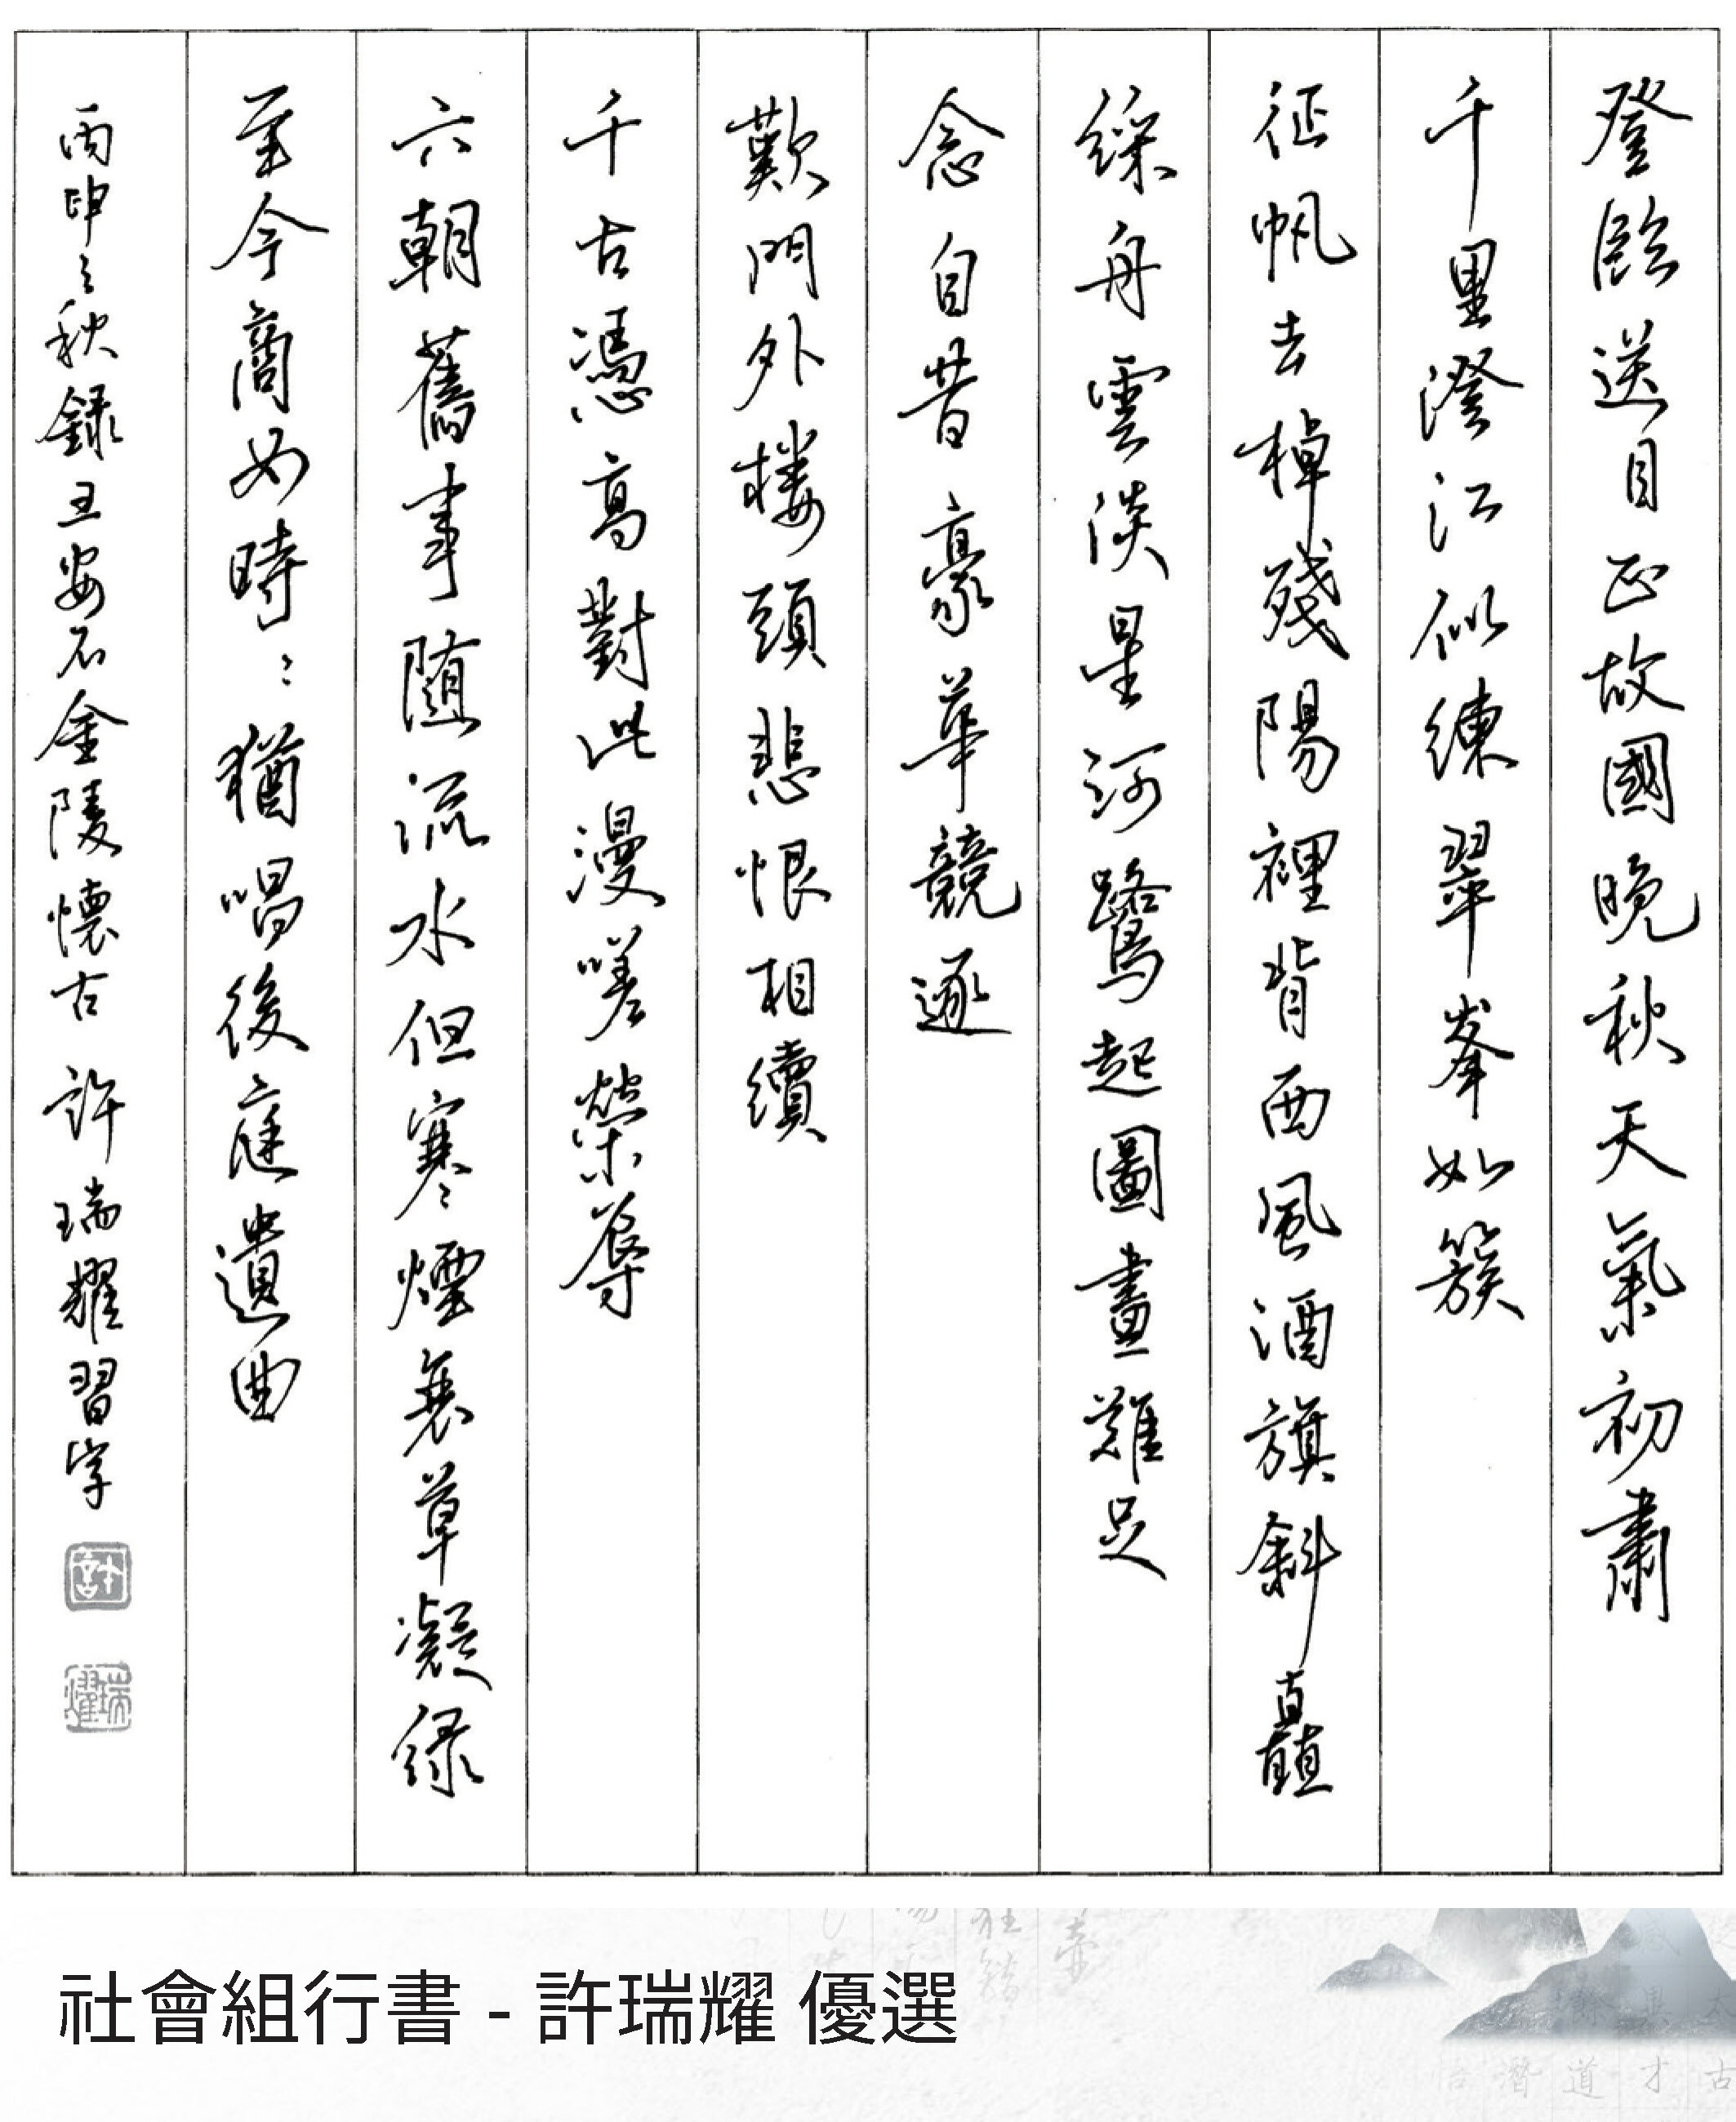 登臨送目正故國晚秋天氣初肅
千里澄江似練翠峯如簇
征帆去棹殘陽裡背西風酒旗斜矗
綵舟雲淡星河鷺起圖畫難足
念自昔豪華競逐
歎門外樓頭悲恨相續
千古憑高對此漫嗟榮辱
六朝舊事隨流水但寒煙衰草凝綠
至今商女時〻猶唱後庭遺曲
丙申之秋錄王安石金陵懷古 許瑞耀習字
許
瑞耀
社會組行書 - 許瑞耀 優選